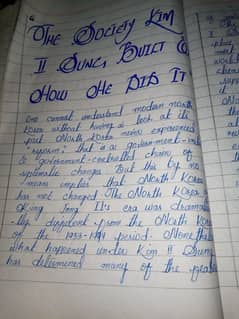 The Society Kim
Il Sung Built &
How He Did It
One cannot understand modern north
Korea without having a look at its
past North Korea never experienced
"reforms", that is a government-
& government-controlled chain of
systematic changes But this by no
means implies that North Korea
has not changed The North Korea
Kim Jong Il's era was dramatical
-ly different from the North Korea
of the 1953-1994 period. None the
what happened under Kim Il Sung
has determined many of the